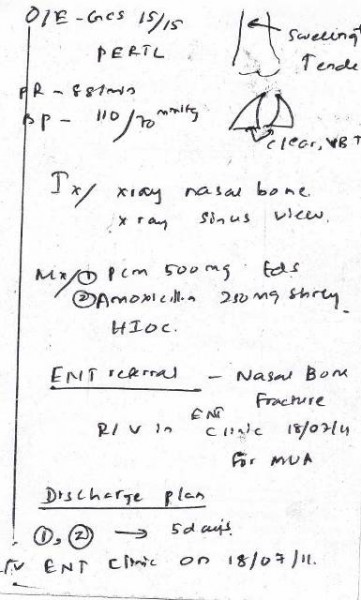 O/E - GCS 15/15
PERTL
swelling
Tende
PR - 88/min
BP - 110/70 mmHg
clear, VB↑
Ix/ xray nasal bone
x ray sinus view.
Mx/ ① pcm 500mg
② Amoxicillin 250mg
HIOC.
ENT referral - Nasal Bone
Fracture
R/V in ENT clinic 18/07/11
for MUA
Discharge plan
①, ② → 5 days.
ENT clinic on 18/07/11.